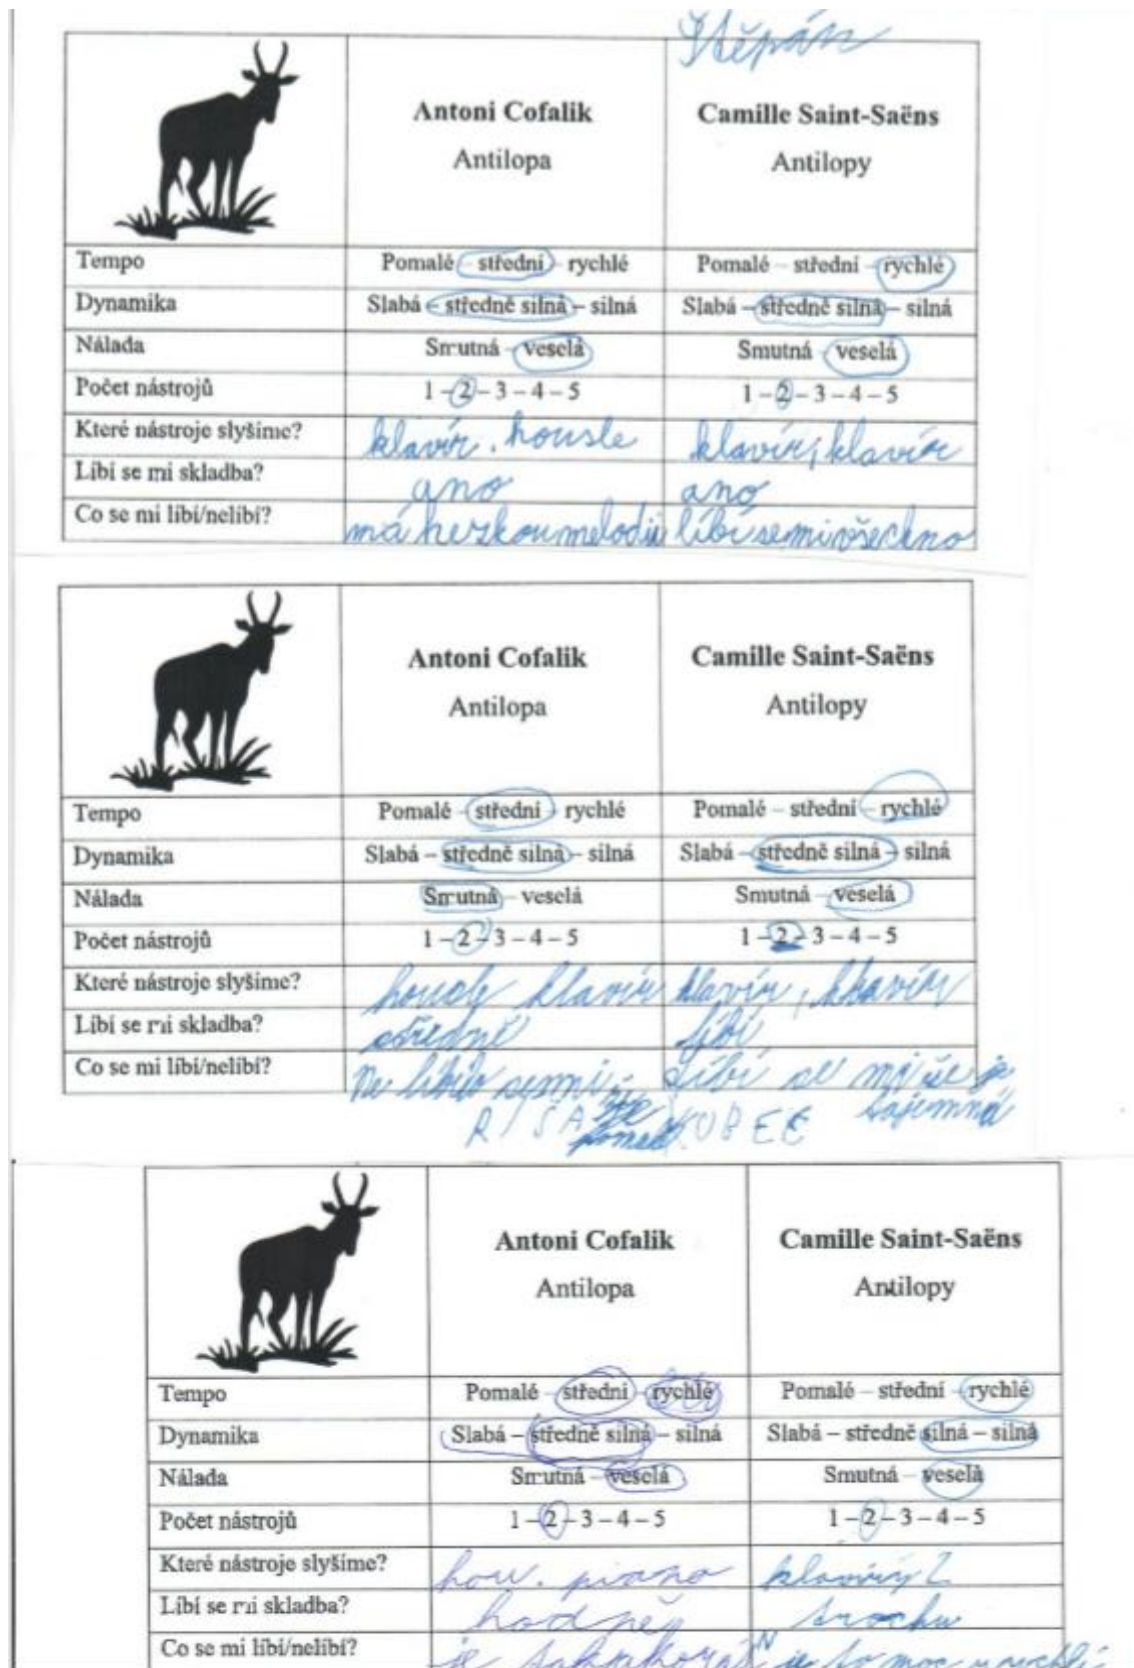 Štěpán
Antoni Cofalik Camille Saint-Saëns
Antilopa Antilopy
Tempo Pomalé – střední – rychlé Pomalé – střední – rychlé
Dynamika Slabá – středně silná – silná Slabá – středně silná – silná
Nálada Smutná – veselá Smutná – veselá
Počet nástrojů 1 – 2 – 3 – 4 – 5 1 – 2 – 3 – 4 – 5
Které nástroje slyšíme? klavír. housle klavír, klavír
Líbí se mi skladba? ano ano
Co se mi líbí/nelíbí? má hezkou melodii líbí se mi všechno
Antoni Cofalik Camille Saint-Saëns
Antilopa Antilopy
Tempo Pomalé – střední – rychlé Pomalé – střední – rychlé
Dynamika Slabá – středně silná – silná Slabá – středně silná – silná
Nálada Smutná – veselá Smutná – veselá
Počet nástrojů 1 – 2 – 3 – 4 – 5 1 – 2 – 3 – 4 – 5
Které nástroje slyšíme? klavír klavír, klavír
Líbí se mi skladba? středně líbí
Co se mi líbí/nelíbí? Líbí se mi že je
tajemná
RÍŠA KUBEC
Antoni Cofalik Camille Saint-Saëns
Antilopa Antilopy
Tempo Pomalé – střední – rychlé Pomalé – střední – rychlé
Dynamika Slabá – středně silná – silná Slabá – středně silná – silná
Nálada Smutná – veselá Smutná – veselá
Počet nástrojů 1 – 2 – 3 – 4 – 5 1 – 2 – 3 – 4 – 5
Které nástroje slyšíme? hou. piano klavíry 2
Líbí se mi skladba? hodně trochu
Co se mi líbí/nelíbí? je je to moc